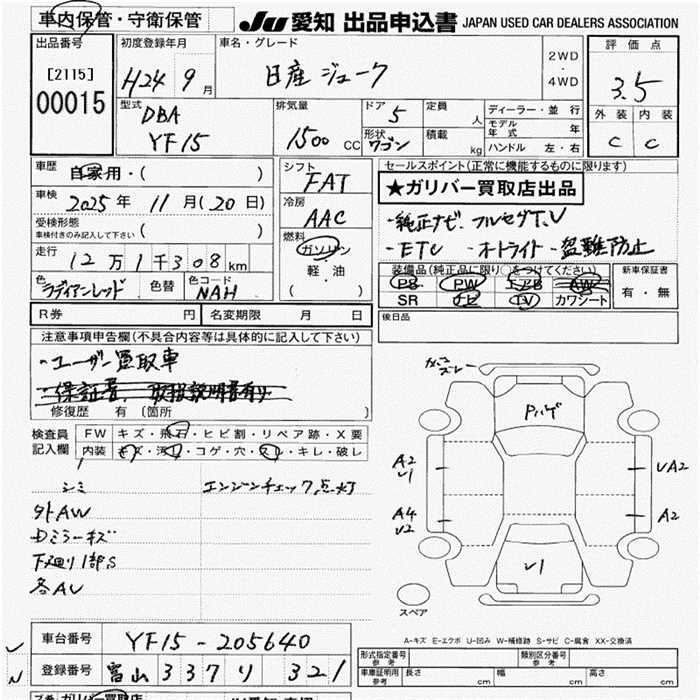 車内保管・守衛保管
JU 愛知 出品申込書 JAPAN USED CAR DEALERS ASSOCIATION
出品番号
[2115]
00015
初度登録年月
H24 9月
車名・グレード
日産 ジューク
2WD
・
4WD
評価点
3.5
外装 内装
C C
型式
DBA
YF15
排気量
1500 CC
ドア 5
形状 ワゴン
定員 人
積載 kg
ディーラー・並行
モデル年式 年
ハンドル 左・右
車歴 自家用・( )
車検 2025年 11月(20日)
受検形態
車検付きのみ記入して下さい ( )
走行 12万1千308km
色 ラディアンレッド 色替 色コード NAH
シフト
FAT
冷房
AAC
燃料
ガソリン
軽・油
・( )
セールスポイント(正常に機能するものに限ります)
★ガリバー買取店出品
・純正ナビ・フルセグT.V
・ETC ・オートライト・盗難防止
装備品(純正品に限り○をつけてください)
PS PW エアB AW
SR ナビ TV カワシート
新車保証書
有・無
後日品
R券 円 名変期限 月 日
注意事項申告欄(不具合内容等は具体的に記入して下さい)
・ユーザー買取車
・保証書、取扱説明書有り
修復歴 有 〔箇所 〕
検査員記入欄
FW キズ・飛石・ヒビ割・リペア跡・X要
内装 キズ・汚・コゲ・穴・スレ・キレ・破レ
シミ エンジンチェック点灯
外AW
Dミラーキズ
下廻り1部S
各AU
ガリコ
ズレ
Pハゲ
A2
U1
UA2
A4
U2
A2
U1
スペア
A-キズ E-エクボ U-凹み W-補修跡 S-サビ C-腐食 XX-交換済
車台番号 YF15-205640
登録番号 富山 337 リ 321
形式指定番号 参考 類別区分番号 参考
車庫証明用 参考 長さ cm 幅 cm 高さ cm